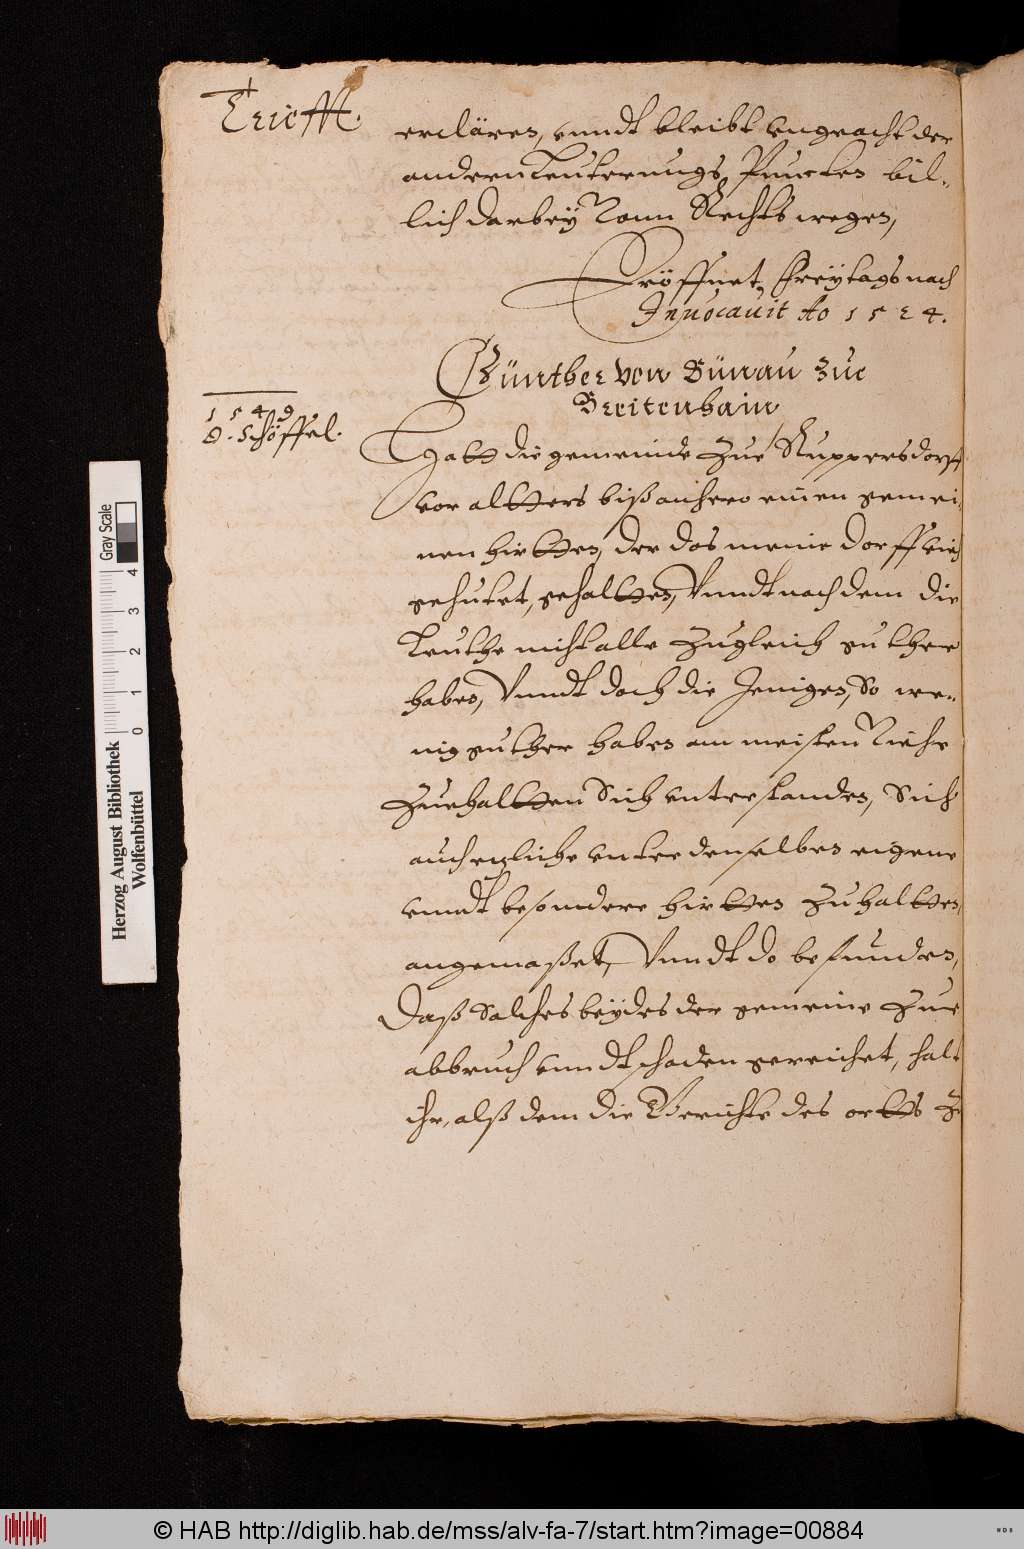 erclären, vnndt bleibt vngeacht der
andern Leuterungs Puncten bil-
lich darbey Vonn Rechts wegen,
Eröffnet, Freÿtags nach
Inuocauit Ao 1524.
Günther von Bünau Zue
Breitenhain
1549
D. Schöffel.
Hatt die gemeinde Zue Ruppersdorff
vor altters biß anhero einen gemei-
nen hirtten, der das meine dorff viehe
gehutet, gehaltten, Vnndt nach dem die
Leuthe nicht alle Zugleich guther
haben, Vnndt doch die Jenigen, So we-
nig guther haben am meisten Viehe
Zuehaltten Sich vnterstanden, Sich
auch etzliche vnter denselben eigene
vnndt besondere hirtten Zuhaltten,
angemaßet, Vnndt do befunden,
Daß Solches beÿdes der gemeine Zue
abbruch vnndt schaden gereichet, hatt
ihr, alß dem die Gerichte des ortts
Gray Scale
0 1 2 3 4
Herzog August Bibliothek
Wolfenbüttel
© HAB http://diglib.hab.de/mss/alv-fa-7/start.htm?image=00884